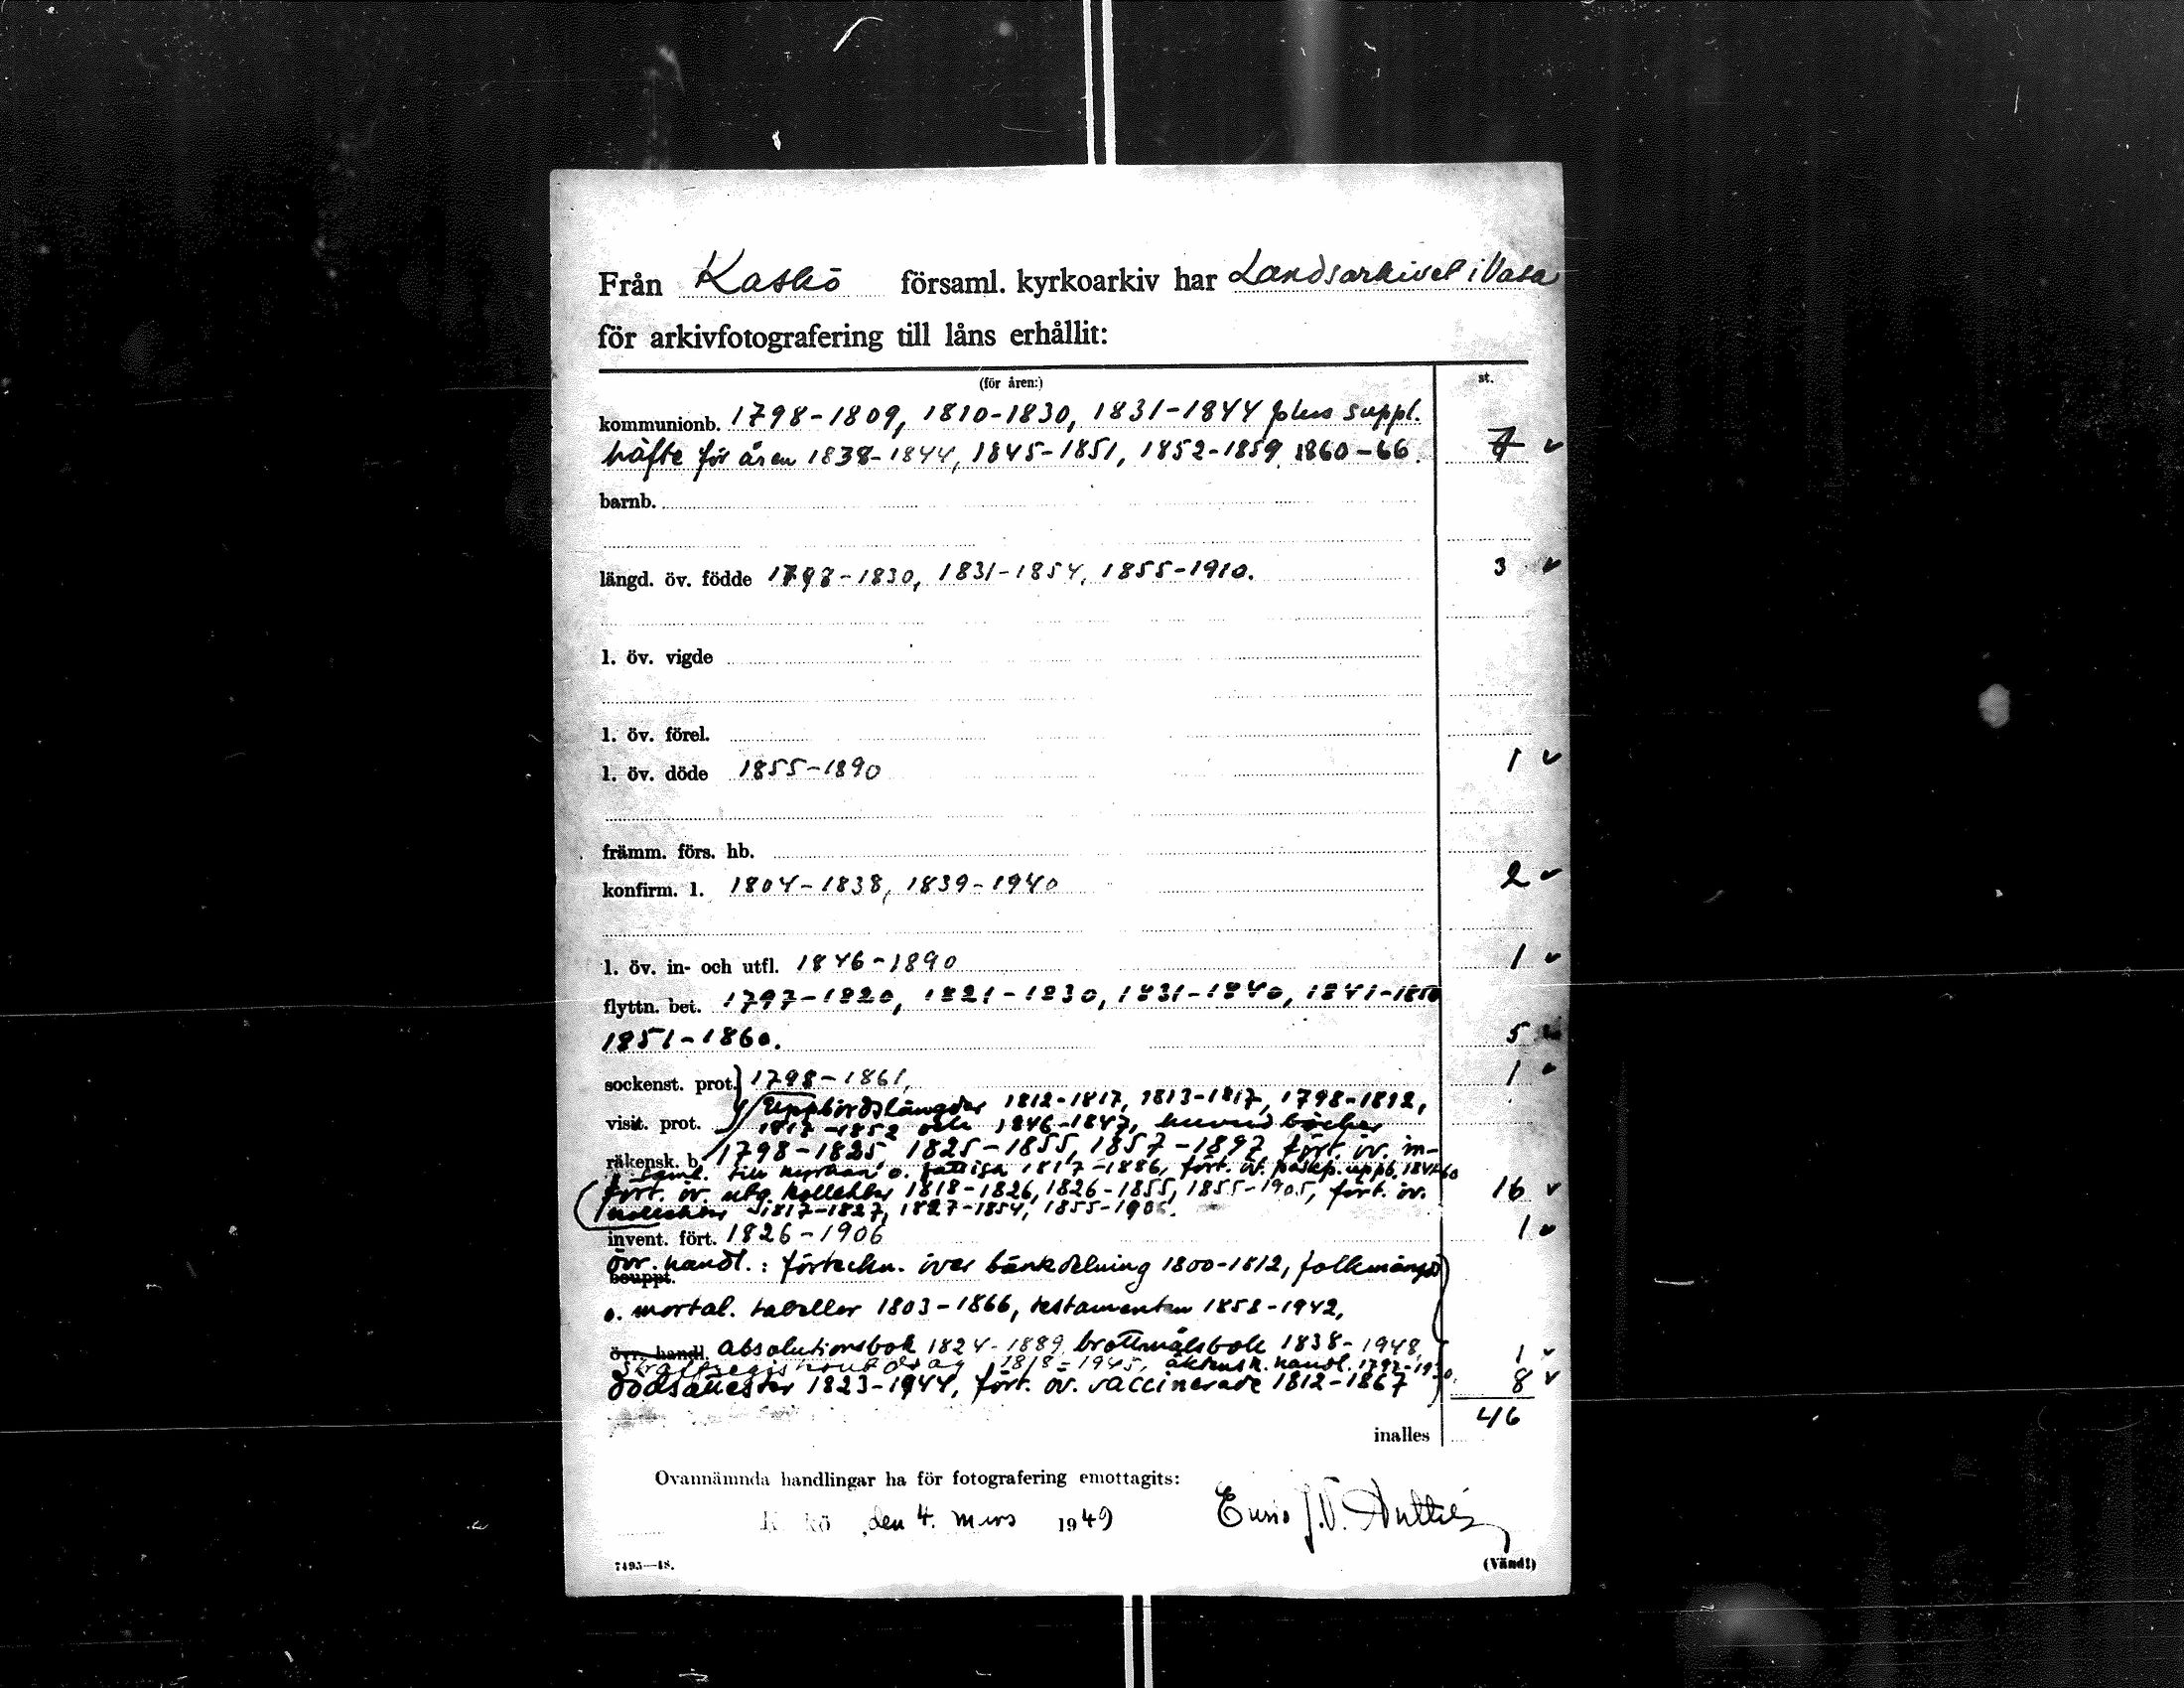 Från Kaskö församl. kyrkoarkiv har Landsarkivet i Vasa
för arkivfotografering till låns erhållit:
(för åren:) st.
kommunionb. 1798-1809, 1810-1830, 1831-1844 plus suppl.
häfte för åren 1838-1844, 1845-1851, 1852-1859, 1860-66. 7 ✓
barnb.
längd. öv. födde 1798-1830, 1831-1854, 1855-1910. 3 ✓
l. öv. vigde
l. öv. förel.
l. öv. döde 1855-1890 1 ✓
främm. förs. hb.
konfirm. l. 1804-1838, 1839-1940 2 ✓
l. öv. in- och utfl. 1846-1890 1 ✓
flyttn. bet. 1797-1820, 1821-1830, 1831-1840, 1841-1850
1851-1860. 5
sockenst. prot. 1798-1861, 1
visit. prot. Uppbördslängder 1812-1817, 1813-1817, 1798-1812,
1817-1852 och 1846-1847, huvudböcker
räkensk. b. 1798-1825 1825-1855, 1857-1897, fört. öv. in-
saml. till kyrkan o. fattiga 1817-1886, fört. öv.
fört. öv. utg. kollekter 1818-1826, 1826-1855, 1855-1905, fört. öv. 16 ✓
kollekter 1817-1827, 1827-1854, 1855-1906.
invent. fört. 1826-1906 1 ✓
övr. handl.: förteckn. över bänkdelning 1800-1812, folkmängd
bouppt.
o. mortal. tabeller 1803-1866, testamenten 1858-1942,
övr. handl. Absolutionsbok 1824-1889, brottmålsbok 1838-1948, 1 ✓
straffregisterutdrag 1818-1945, äktensk. handl.
dödsattester 1823-1944, fört. öv. vaccinerade 1812-1867 8 ✓
46
inalles
Ovannämnda handlingar ha för fotografering emottagits:
K kö, den 4. mars 1949
7495—48. (Vänd!)